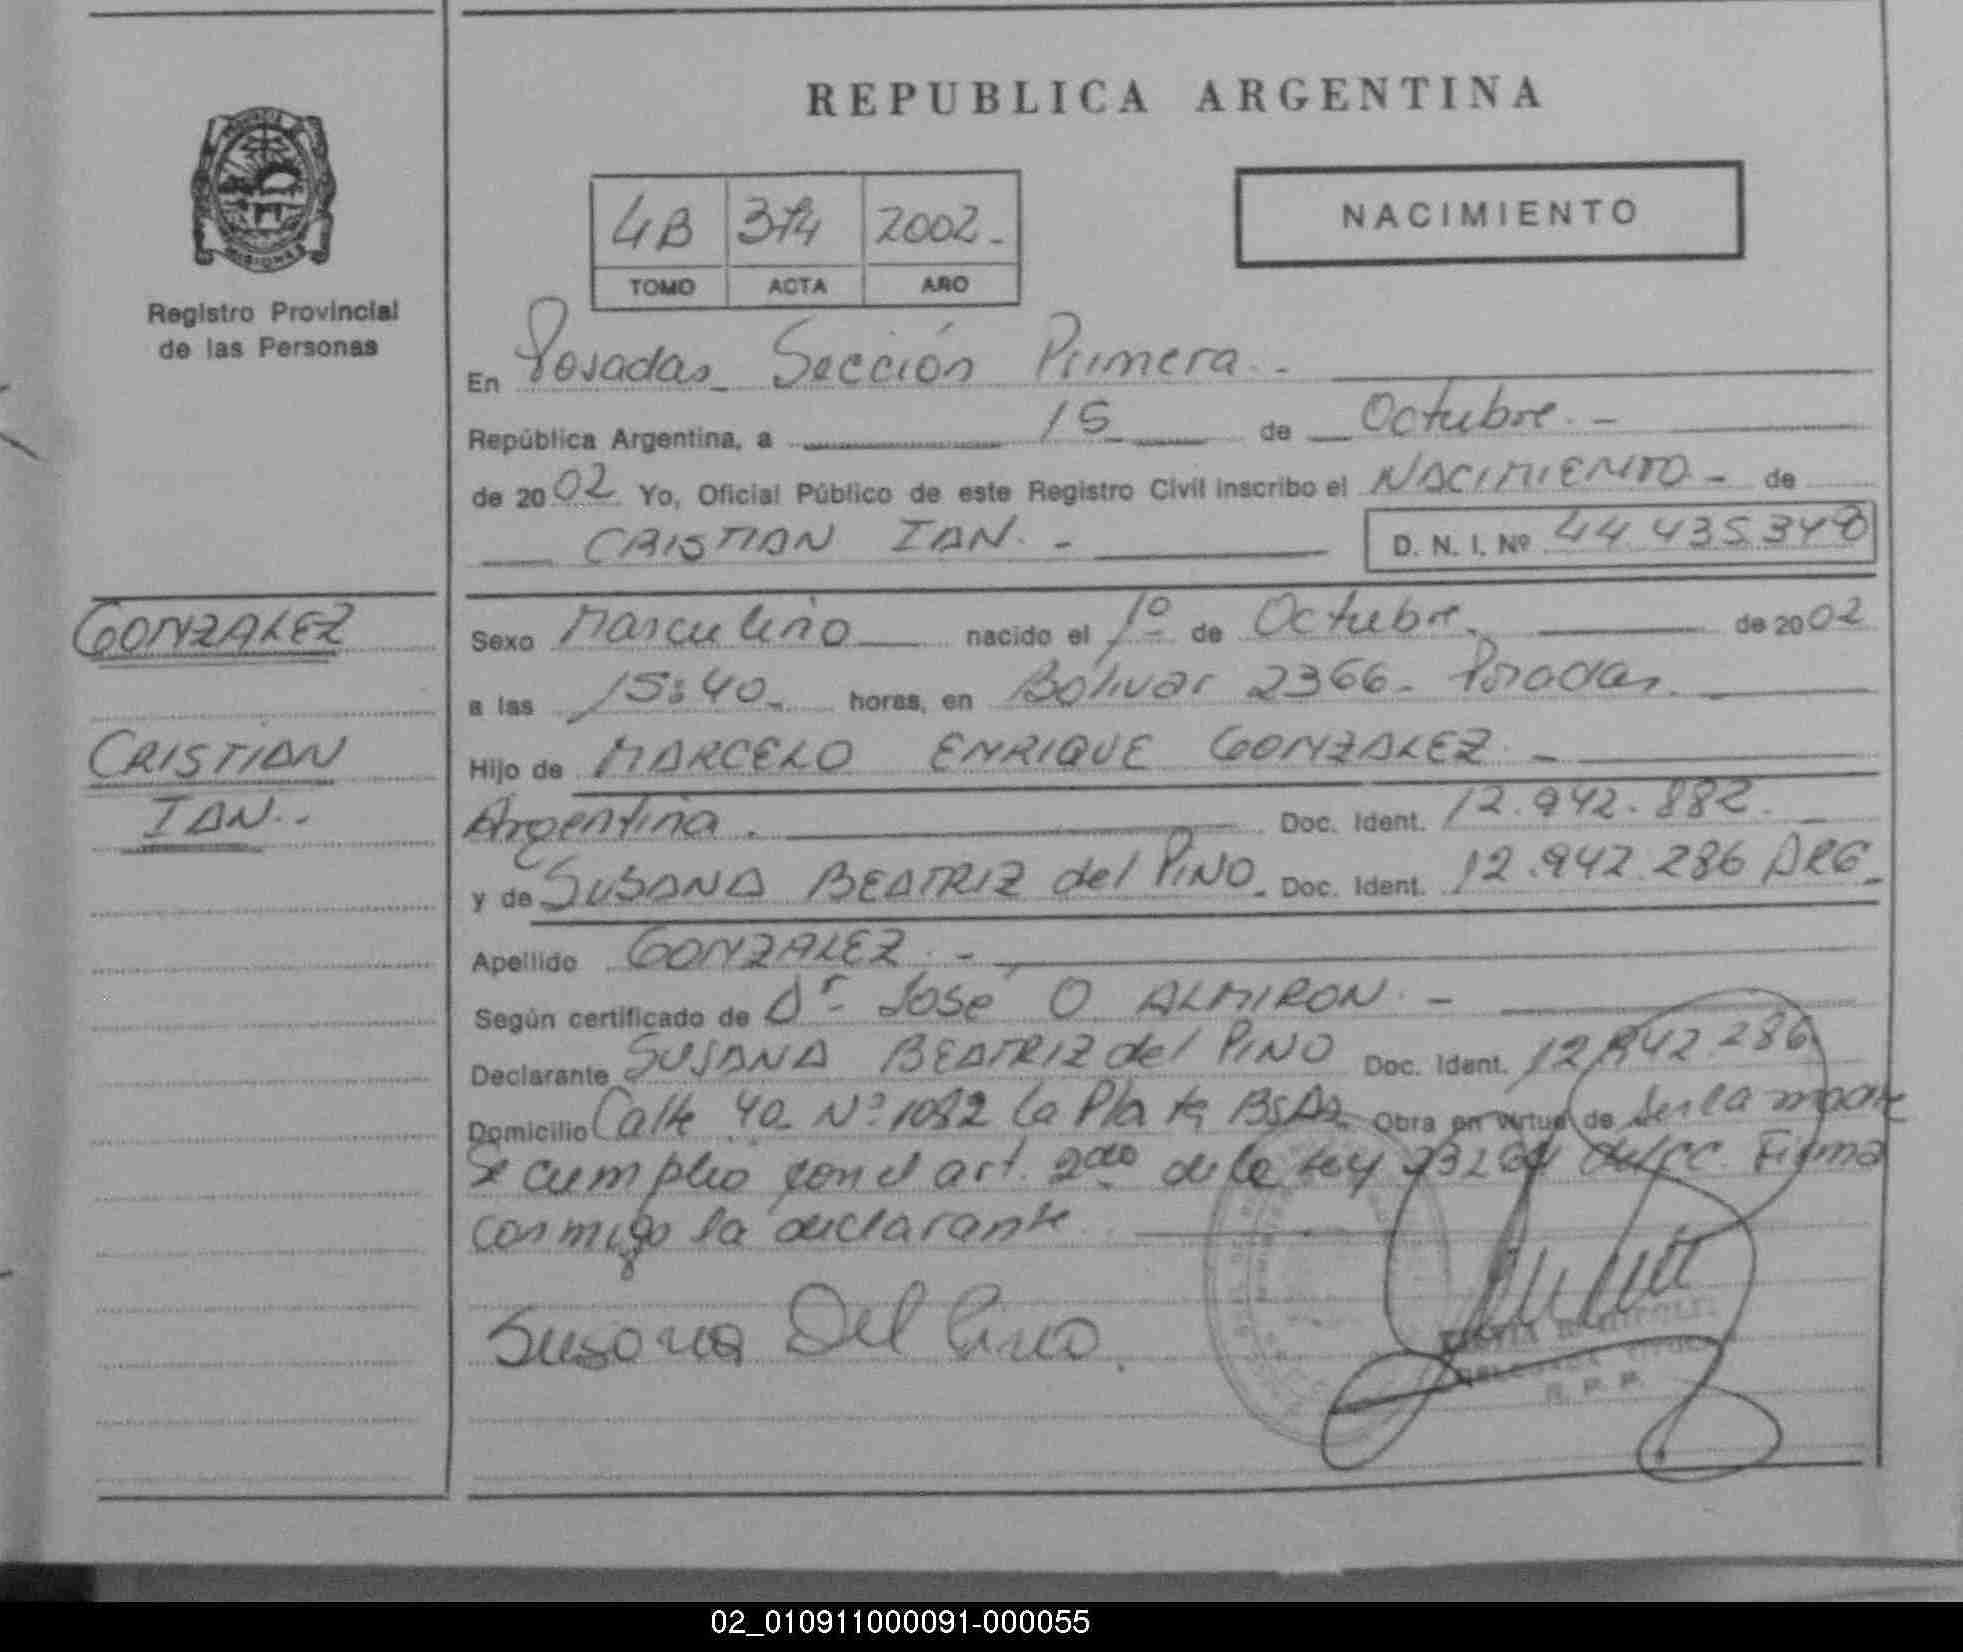 REPUBLICA ARGENTINA
NACIMIENTO
4B 374 2002.-
TOMO ACTA AÑO
MISIONES
Registro Provincial
de las Personas
En Posadas Sección Primera.-
República Argentina, a 15 de Octubre.-
de 2002 Yo, Oficial Público de este Registro Civil inscribo el NACIMIENTO - de
CRISTIAN IAN.- D. N. I. Nº 44.435.348
GONZALEZ
CRISTIAN
IAN.-
Sexo Masculino nacido el 1º de Octubre. de 2002
a las 15:40. horas, en Bolivar 2366. Posadas.
Hijo de MARCELO ENRIQUE GONZALEZ.-
Argentina. Doc. Ident. 12.942.882.-
y de SUSANA BEATRIZ del PINO. Doc. Ident. 12.942.286 ARG.
Apellido GONZALEZ.-
Según certificado de Dr. José O ALMIRON.-
Declarante SUSANA BEATRIZ del PINO Doc. Ident. 12.942.286
Domicilio Calle 40 Nº 1082 La Plata BsAs. Obra en virtud de ser la madre
Se cumplio con el art. 2do de la Ley 23264 del CC. Firma
conmigo la declarante
Susana Del Pino.
R. P. P.
02_010911000091-000055